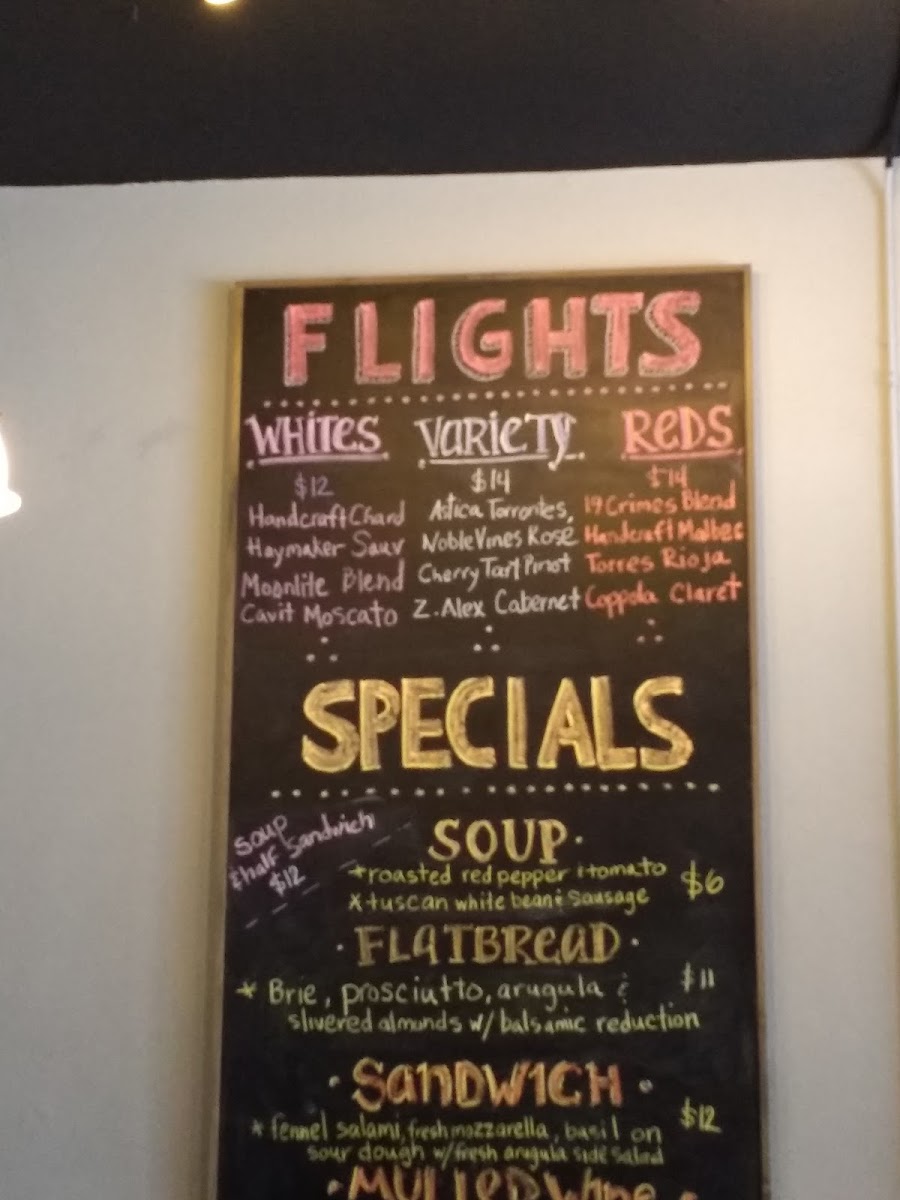 FLIGHTS
WHITES
$12
Handcraft Chard
Haymaker Sauv
Moonlite Blend
Cavit Moscato
VARIETY
$14
Astica Torrontes,
Noble Vines Rose
Cherry Tart Pinot
Z. Alex Cabernet
REDS
$14
19 Crimes Blend
Handcraft Malbec
Torres Rioja
Coppola Claret
SPECIALS
Soup
& half Sandwich
$12
SOUP
*roasted red pepper & tomato
*tuscan white bean & sausage
$6
FLATBREAD
* Brie, prosciutto, arugula &
slivered almonds w/ balsamic reduction
$11
SANDWICH
* fennel salami, fresh mozzarella, basil on
sour dough w/ fresh arugula side salad
$12
MULLED WINE